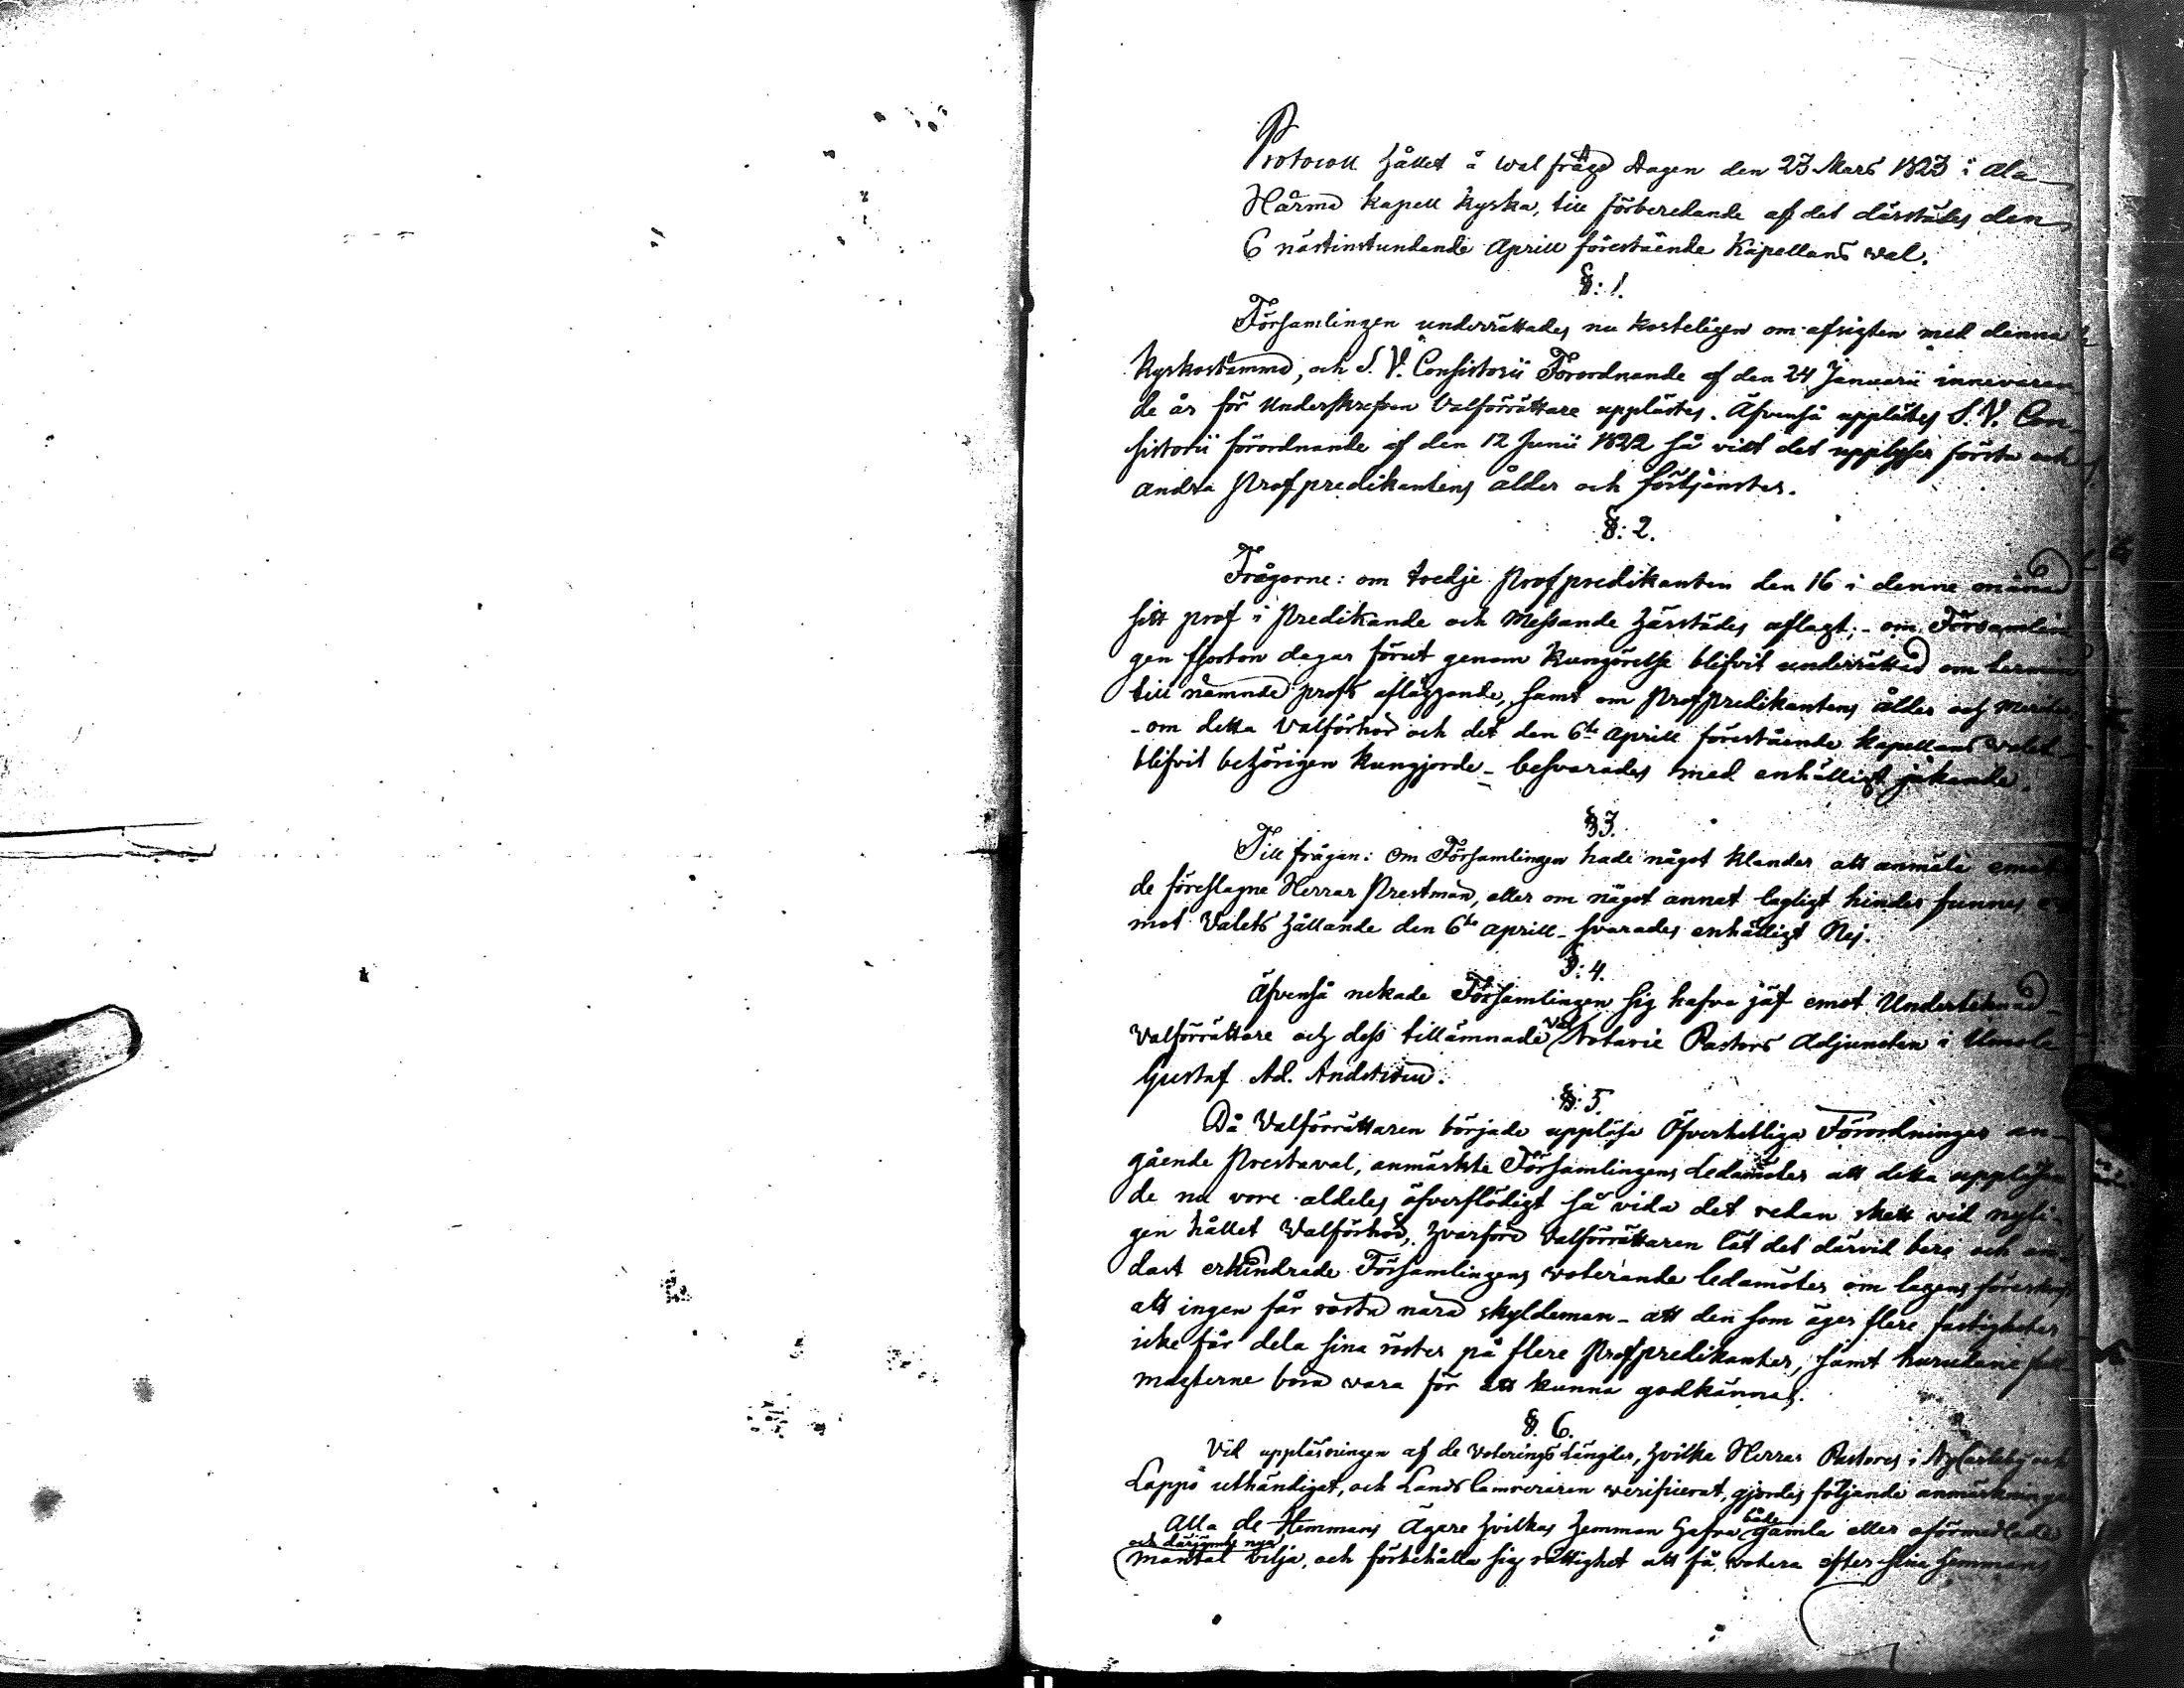 Protocoll hållet å Walfråge dagen den 23 Mars 1823 i Ala
Härmä Kapell Kyrka, till förberedande af det därstädes den
6 nästinstundande Aprill förestående Kapellans val.
§: 1.
Församlingen underrättades nu korteligen om afsigten med denna
Kyrkostämma, och S. V. Consistorii Förordnande af den 24 Januarii innevaran
de år för Underskrefven Valförrättare upplästes. Äfvenså upplästes S. V. Con-
sistorii förordnande af den 12 Junii 1822 så vidt det upplyser första och
andra Profpredikantens ålder och förtjenster.
§: 2.
Frågorne: om tredje Profpredikanten den 16 i denne månad
sitt prof i Predikande och Messande härstädes aflagt; - om Församlin
gen fjorton dagar förut genom Kungörelse blifvit underrättad om termin
till nämnde profs afläggande, samt om Profpredikantens ålder och meriter,
- om detta Valförhör och det den 6te Aprill förestående Kapellans valet
blifvit behörigen kungjorde - besvarades med enhälligt jakande.
§ 3.
Till frågan: Om Församlingen hade något klander att anmäla emot
de föreslagne Herrar Prestmän, eller om något annat lagligt hinder funnes e
mot Valets hållande den 6te Aprill - svarades enhälligt Nej.
§: 4.
Äfvenså nekade Församlingen sig hafva jäf emot Undertecknad
Valförrättare och dess tillämnade val Notarie Pastors Adjuncten i
Gustaf Ad.
§: 5.
Då Valförrättaren började uppläsa Öfverhetliga Förordningar an-
gående Prestaval, anmärkte Församlingens Ledamöter att detta uppläsan
de nu vore aldeles öfverflödigt så vida det redan skett vid nyli-
gen hållet Valförhör, hvarföre Valförrättaren lät det därvid bero och en-
dast erhindrade Församlingens voterande ledamöter om lagens föreskrif
att ingen får rösta nära skyldeman - att den som äger flere fastigheter
icke får dela sina röster på flere Profpredikanter, samt hurudane full
magterne böra vara för att kunna godkännas.
§. 6.
Vid uppläsningen af de Voterings Längder, hvilka Herrar Pastores i NyCarleby och
Lappo uthändigat, och Lands Camreraren verificerat, gjordes följande anmärkningar
Alla de Hemmans Ägare hvilkas hemman hafva både gamla eller oförmedlade
och därjemte nya
mantal vilja, och förbehålla sig rättighet att få votera efter sina hemmans